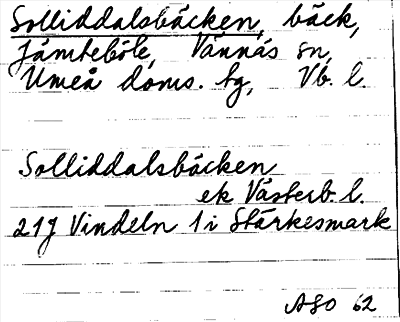 Solliddalsbäcken, bäck,
Jämteböle, Vännäs sn,
Umeå doms. tg, Vb. l.
Solliddalsbäcken
ek Västerb. l.
21J Vindeln 1i Stärkesmark
ASO 62